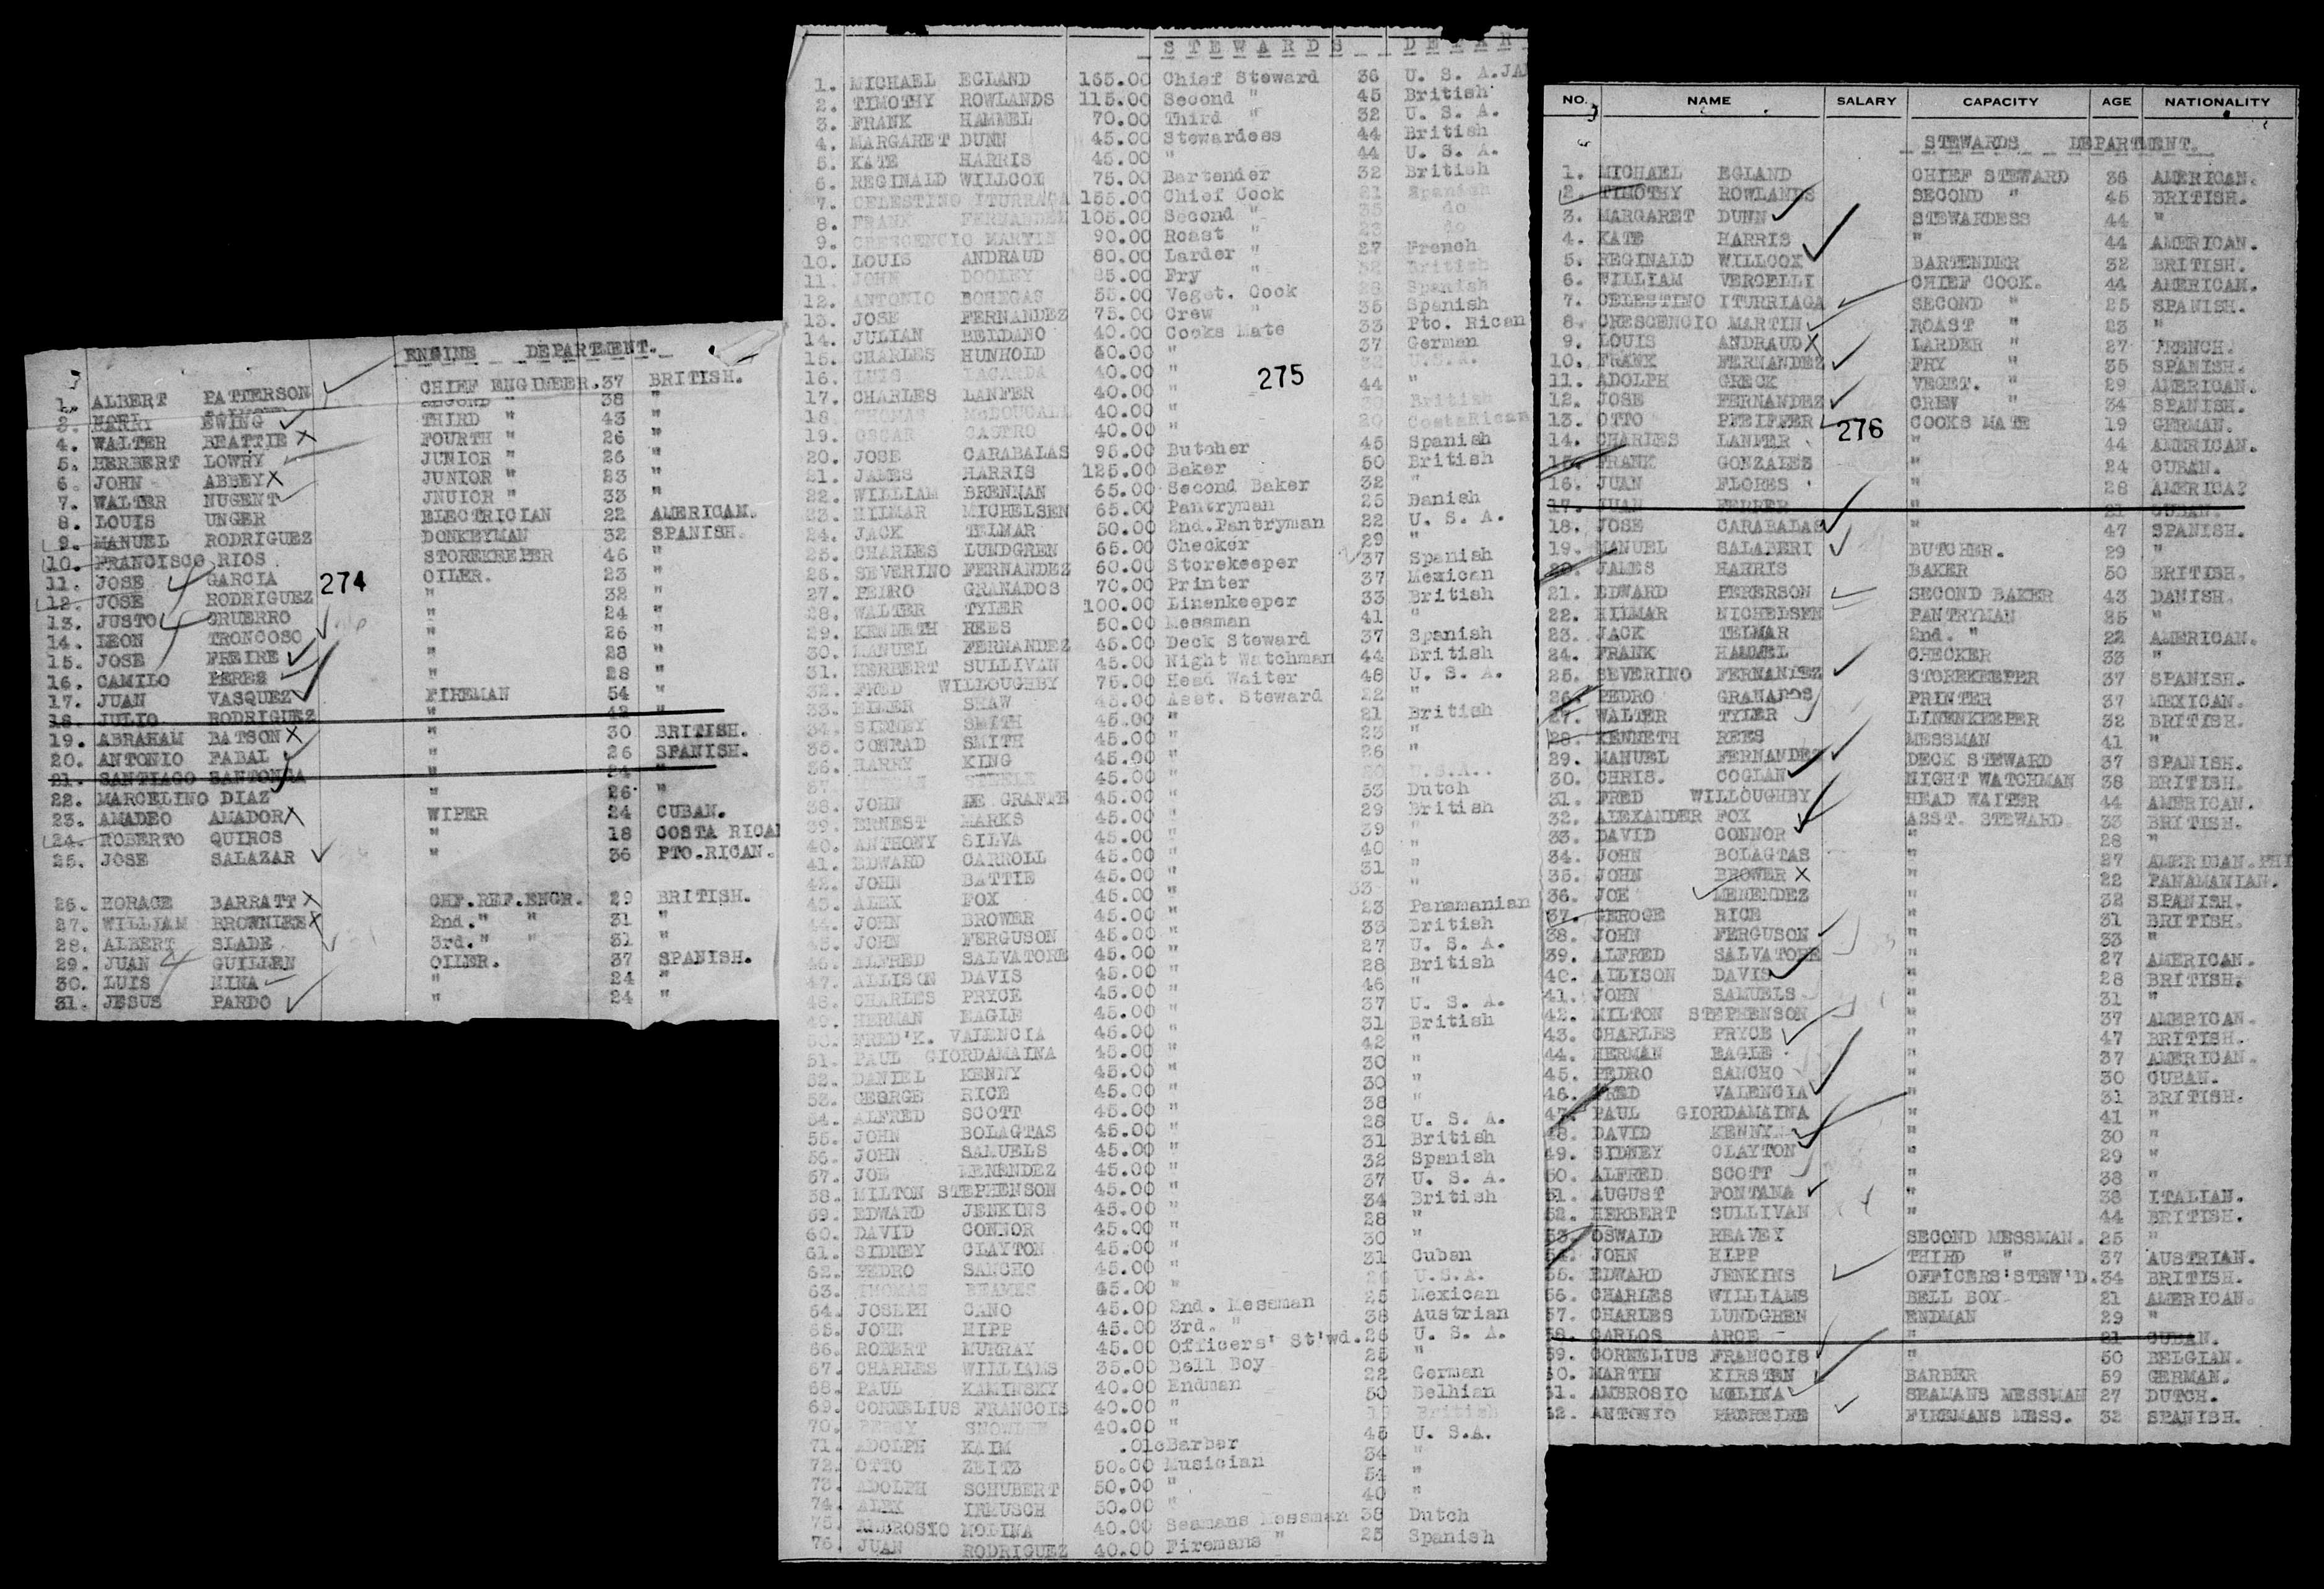 ENGINE DEPARTMENT.
1. ALBERT PATTERSON CHIEF ENGINEER. 37 BRITISH.
SECOND " 38 "
3. HENRY EWING THIRD " 43 "
4. WALTER BEATTIE FOURTH " 26 "
5. HERBERT LOWRY JUNIOR " 26 "
6. JOHN ABBEY JUNIOR " 23 "
7. WALTER NUGENT JNUIOR " 33 "
8. LOUIS UNGER ELECTRICIAN 22 AMERICAN.
9. MANUEL RODRIGUEZ DONKEYMAN 32 SPANISH.
10. FRANCISCO RIOS STOREKEEPER 46 "
11. JOSE GARCIA OILER. 23 "
274
12. JOSE RODRIGUEZ " 32 "
13. JUSTO GRUERRO " 24 "
14. LEON TRONCOSO " 26 "
15. JOSE FREIRE " 28 "
16. CAMILO PEREZ " 28 "
17. JUAN VASQUEZ FIREMAN 54 "
18. JULIO RODRIGUEZ " 42 "
19. ABRAHAM BATSON " 30 BRITISH.
20. ANTONIO PABAL " 26 SPANISH.
21. SANTIAGO SANTONGA " 24 "
22. MARCELINO DIAZ " 26 "
23. AMADEO AMADOR WIPER 24 CUBAN.
24. ROBERTO QUIROS " 18 COSTA RICA
25. JOSE SALAZAR " 36 PTO.RICAN.
26. HORACE BARRATT CHF.REF.ENGR. 29 BRITISH.
27. WILLIAM BROWNIRE 2nd." " 31 "
28. ALBERT SLADE 3rd." " 31 "
29. JUAN GUILLEN OILER. 37 SPANISH.
30. LUIS MINA " 24 "
31. JESUS PARDO " 24 "
STEWARDS DEPAR
1. MICHAEL EGLAND 165.00 Chief Steward 36 U. S. A.
2. TIMOTHY ROWLANDS 115.00 Second " 45 British
3. FRANK HAMMEL 70.00 Third " 32 U. S. A.
4. MARGARET DUNN 45.00 Stewardess 44 British
5. KATE HARRIS 45.00 " 44 U. S. A.
6. REGINALD WILLCOX 75.00 Bartender 32 British
7. CELESTINO ITURRAGA 155.00 Chief Cook 21 Spanish
8. FRANK FERNANDEZ 105.00 Second " 35 do
9. CRESCENCIO MARTIN 90.00 Roast " 23 do
10. LOUIS ANDRAUD 80.00 Larder " 27 French
11. JOHN DOOLEY 85.00 Fry " 32 British
12. ANTONIO BOHEGAS 55.00 Veget. Cook 28 Spanish
13. JOSE FERNANDEZ 75.00 Crew " 35 Spanish
14. JULIAN BELDANO 40.00 Cooks Mate 33 Pto. Rican
15. CHARLES HUNHOLD 40.00 " 37 German
16. LUIS LAGARDA 40.00 " 22 U.S.A.
275
17. CHARLES LANFER 40.00 " 44 "
18. THOMAS McDOUGALL 40.00 " 30 British
19. OSCAR CASTRO 40.00 " 20 CostaRican
20. JOSE CARABALAS 95.00 Butcher 45 Spanish
21. JAMES HARRIS 125.00 Baker 50 British
22. WILLIAM BRENNAN 65.00 Second Baker 32 "
23. HILMAR MICHELSEN 65.00 Pantryman 25 Danish
24. JACK TELMAR 50.00 2nd.Pantryman 22 U. S. A.
25. CHARLES LUNDGREN 65.00 Checker 29 "
26. SEVERINO FERNANDEZ 60.00 Storekeeper 37 Spanish
27. PEDRO GRANADOS 70.00 Printer 37 Mexican
28. WALTER TYLER 100.00 Linenkeeper 33 British
29. KENNETH REES 50.00 Messman 41 "
30. MANUEL FERNANDEZ 45.00 Deck Steward 37 Spanish
31. HERBERT SULLIVAN 45.00 Night Watchman 44 British
32. FRED WILLOUGHBY 75.00 Head Waiter 48 U. S. A.
33. ELMER SHAW 45.00 Asst. Steward 22 "
34. SIDNEY SMITH 45.00 " 21 British
35. CONRAD SMITH 45.00 " 23 "
36. HARRY KING 45.00 " 26 "
37. 45.00 " 20 U.S.A.
38. JOHN DE GRAFFE 45.00 " 33 Dutch
39. ERNEST MARKS 45.00 " 29 British
40. ANTHONY SILVA 45.00 " 39 "
41. EDWARD CARROLL 45.00 " 40 "
42. JOHN BATTIE 45.00 " 31 "
43. ALEX FOX 45.00 " 33 "
44. JOHN BROWER 45.00 " 23 Panamanian
45. JOHN FERGUSON 45.00 " 33 British
46. ALFRED SALVATORE 45.00 " 27 U. S. A.
47. ALLISON DAVIS 45.00 " 28 British
48. CHARLES PRYCE 45.00 " 46 "
49. HERMAN EAGLE 45.00 " 37 U. S. A.
50. FRED'K. VALENCIA 45.00 " 31 British
51. PAUL GIORDAMAINA 45.00 " 42 "
52. DANIEL KENNY 45.00 " 30 "
53. GEORGE RICE 45.00 " 30 "
54. ALFRED SCOTT 45.00 " 38 "
55. JOHN BOLAGTAS 45.00 " 28 U. S. A.
56. JOHN SAMUELS 45.00 " 31 British
57. JOE MENENDEZ 45.00 " 32 Spanish
58. MILTON STEPHENSON 45.00 " 37 U. S. A.
59. EDWARD JENKINS 45.00 " 34 British
60. DAVID CONNOR 45.00 " 28 "
61. SIDNEY CLAYTON 45.00 " 30 "
62. PEDRO SANCHO 45.00 " 31 Cuban
63. THOMAS BEAMES 45.00 " 26 U.S.A.
64. JOSEPH CANO 45.00 2nd. Messman 25 Mexican
65. JOHN HIPP 45.00 3rd. " 38 Austrian
66. ROBERT MURRAY 45.00 Officers' St'wd. 26 U. S. A.
67. CHARLES WILLIAMS 35.00 Bell Boy 25 "
68. PAUL KAMINSKY 40.00 Endman 22 German
69. CORNELIUS FRANCOIS 40.00 " 50 Belhian
70. PERCY SNOWDEN 40.00 " British
71. ADOLPH KAIM .01c Barber 45 U. S.A.
72. OTTO ZEITZ 50.00 Musician 34 "
73. ADOLPH SCHUBERT 50.00 " 54 "
74. ALEX IRMUSCH 50.00 " 40 "
75. AMBROSIO MOLINA 40.00 Seamans Messman 38 Dutch
76. JUAN RODRIGUEZ 40.00 Firemans " 25 Spanish
NO. NAME SALARY CAPACITY AGE NATIONALITY
STEWARDS DEPARTMENT.
1. MICHAEL EGLAND CHIEF STEWARD 36 AMERICAN.
2. TIMOTHY ROWLANDS SECOND " 45 BRITISH.
3. MARGARET DUNN STEWARDESS 44 "
4. KATE HARRIS " 44 AMERICAN.
5. REGINALD WILLCOX BARTENDER 32 BRITISH.
6. WILLIAM VERCELLI CHIEF COOK. 44 AMERICAN.
7. CELESTINO ITURRIAGA SECOND " 25 SPANISH.
8. CRESCENCIO MARTIN ROAST " 23 "
9. LOUIS ANDRAUD LARDER " 27 FRENCH.
10. FRANK FERNANDEZ FRY " 35 SPANISH.
11. ADOLPH GRECK VEGET. " 29 AMERICAN.
12. JOSE FERNANDEZ CREW " 34 SPANISH.
13. OTTO PFEIFFER COOKS MATE 19 GERMAN.
276
14. CHARLES LANFER " 44 AMERICAN.
15. FRANK GONZALEZ " 24 CUBAN.
16. JUAN FLORES " 28 AMERICA?
17. JUAN FERRER " 21 CUBAN.
18. JOSE CARABALAS " 47 SPANISH.
19. MANUEL SALABERI BUTCHER. 29 "
20. JAMES HARRIS BAKER 50 BRITISH.
21. EDWARD PERERSON SECOND BAKER 43 DANISH.
22. HILMAR NICHELSEN PANTRYMAN 35 "
23. JACK TELMAR 2nd. " 22 AMERICAN.
24. FRANK HAMMEL CHECKER 33 "
25. SEVERINO FERNANDEZ STOREKEEPER 37 SPANISH.
26. PEDRO GRANADOS PRINTER 37 MEXICAN.
27. WALTER TYLER LINENKEEPER 32 BRITISH.
28. KENNETH REES MESSMAN 41 "
29. MANUEL FERNANDEZ DECK STEWARD 37 SPANISH.
30. CHRIS. COGLAN NIGHT WATCHMAN 38 BRITISH.
31. FRED WILLOUGHBY HEAD WAITER 44 AMERICAN.
32. ALEXANDER FOX ASST. STEWARD 33 BRITISH.
33. DAVID CONNOR " 28 "
34. JOHN BOLAGTAS " 27 AMERICAN.PHI
35. JOHN BROWER " 22 PANAMANIAN.
36. JOE MENENDEZ " 32 SPANISH.
37. GEROGE RICE " 31 BRITISH.
38. JOHN FERGUSON " 33 "
39. ALFRED SALVATORE " 27 AMERICAN.
40. ALLISON DAVIS " 28 BRITISH.
41. JOHN SAMUELS " 31 "
42. MILTON STEPHENSON " 37 AMERICAN.
43. CHARLES PRYCE " 47 BRITISH.
44. HERMAN EAGLE " 37 AMERICAN.
45. PEDRO SANCHO " 30 CUBAN.
46. FRED VALENCIA " 31 BRITISH.
47. PAUL GIORDAMAINA " 41 "
48. DAVID KENNY " 30 "
49. SIDNEY CLAYTON " 29 "
50. ALFRED SCOTT " 38 "
51. AUGUST FONTANA " 38 ITALIAN.
52. HERBERT SULLIVAN " 44 BRITISH.
53. OSWALD REAVEY SECOND MESSMAN. 25 "
54. JOHN HIPP THIRD " 37 AUSTRIAN.
55. EDWARD JENKINS OFFICERS'STEW'D. 34 BRITISH.
56. CHARLES WILLIAMS BELL BOY 21 AMERICAN.
57. CHARLES LUNDGREN ENDMAN 29 "
58. CARLOS ARCE " 21 CUBAN.
59. CORNELIUS FRANCOIS " 50 BELGIAN.
60. MARTIN KIRSTEN BARBER 59 GERMAN.
61. AMBROSIO MOLINA SEAMANS MESSMAN 27 DUTCH.
62. ANTONIO PEDREIRE FIREMANS MESS. 32 SPANISH.